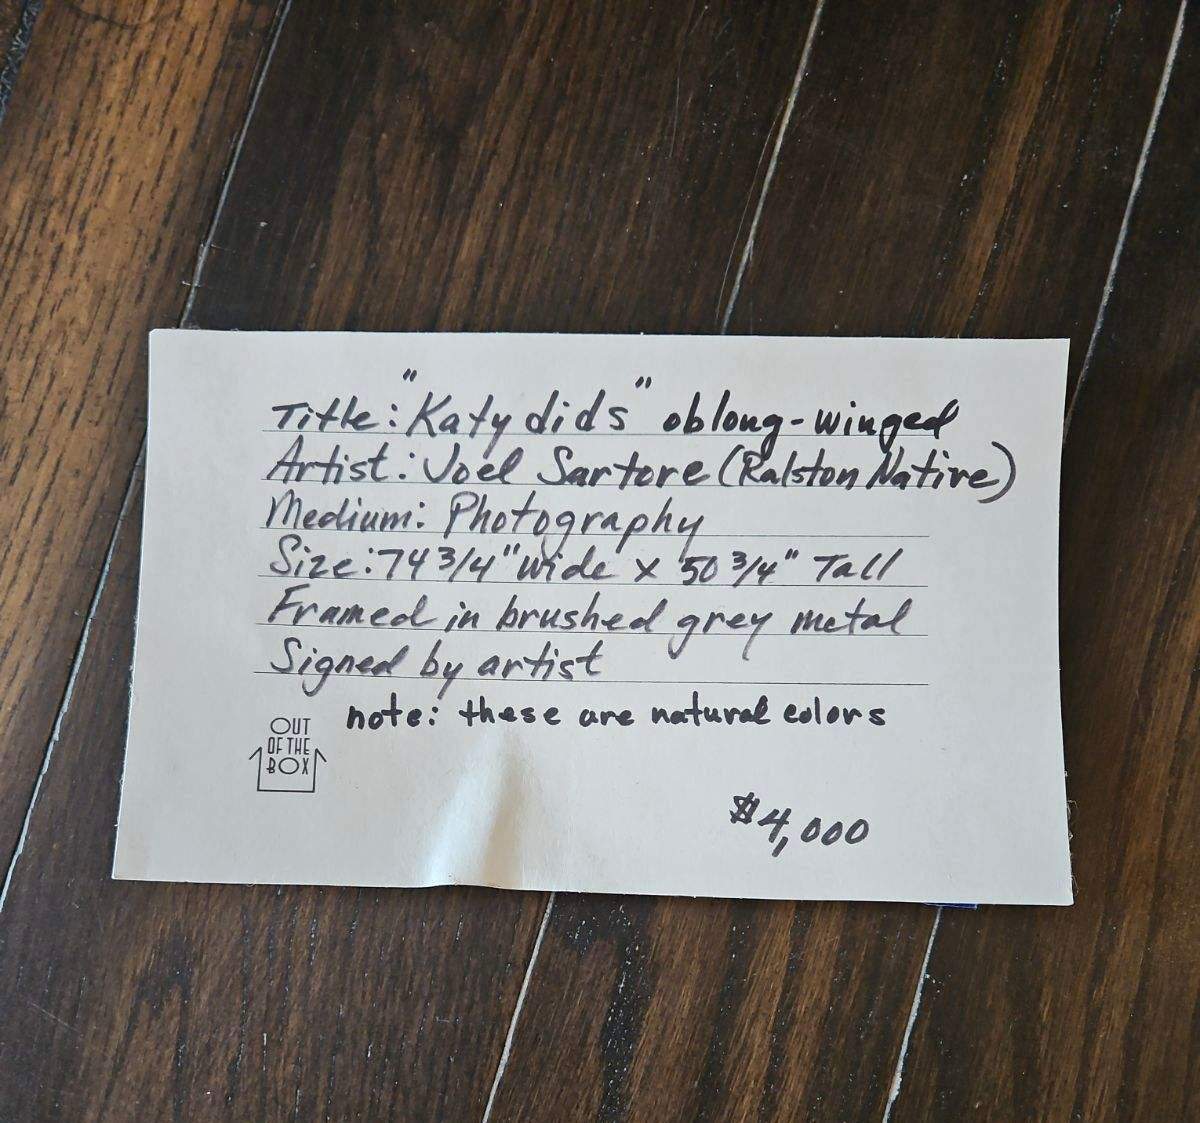 Title: "Katydids" oblong-winged
Artist: Joel Sartore (Ralston Native)
Medium: Photography
Size: 74 3/4" wide x 50 3/4" Tall
Framed in brushed grey metal
Signed by artist
note: these are natural colors
OUT
OF THE
BOX
$4,000